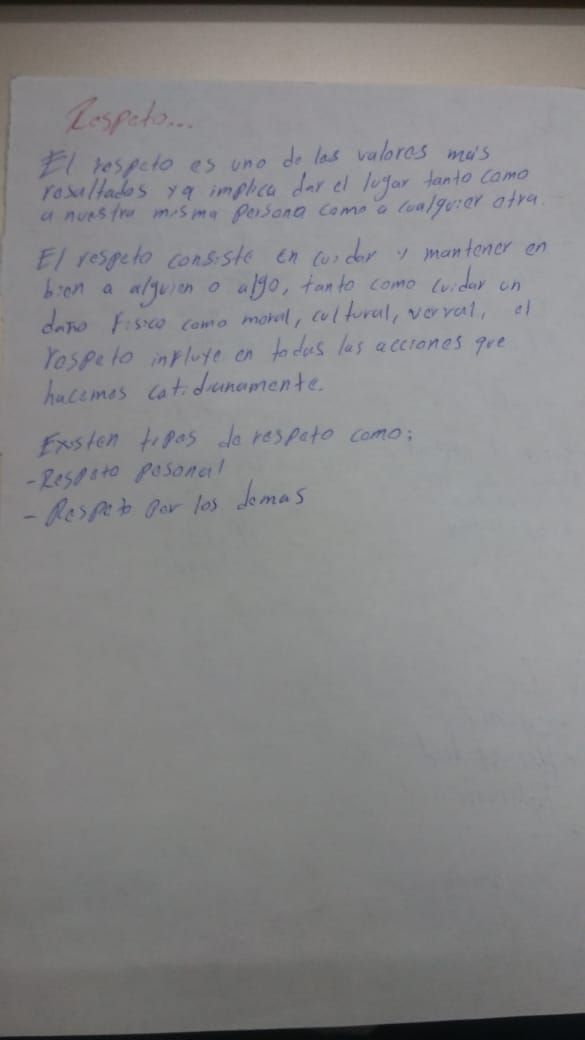 Respeto...
El respeto es uno de los valores más
resultados ya implica dar el lugar tanto como
a nuestra misma persona como a cualquier otra.
El respeto consiste en cuidar y mantener en
bien a alguien o algo, tanto como cuidar un
daño físico como moral, cultural, verval, el
respeto influye en todas las acciones que
hacemos catidianamente.
Existen tipos de respeto como:
- Respeto pesonal
- Respeto por los demas